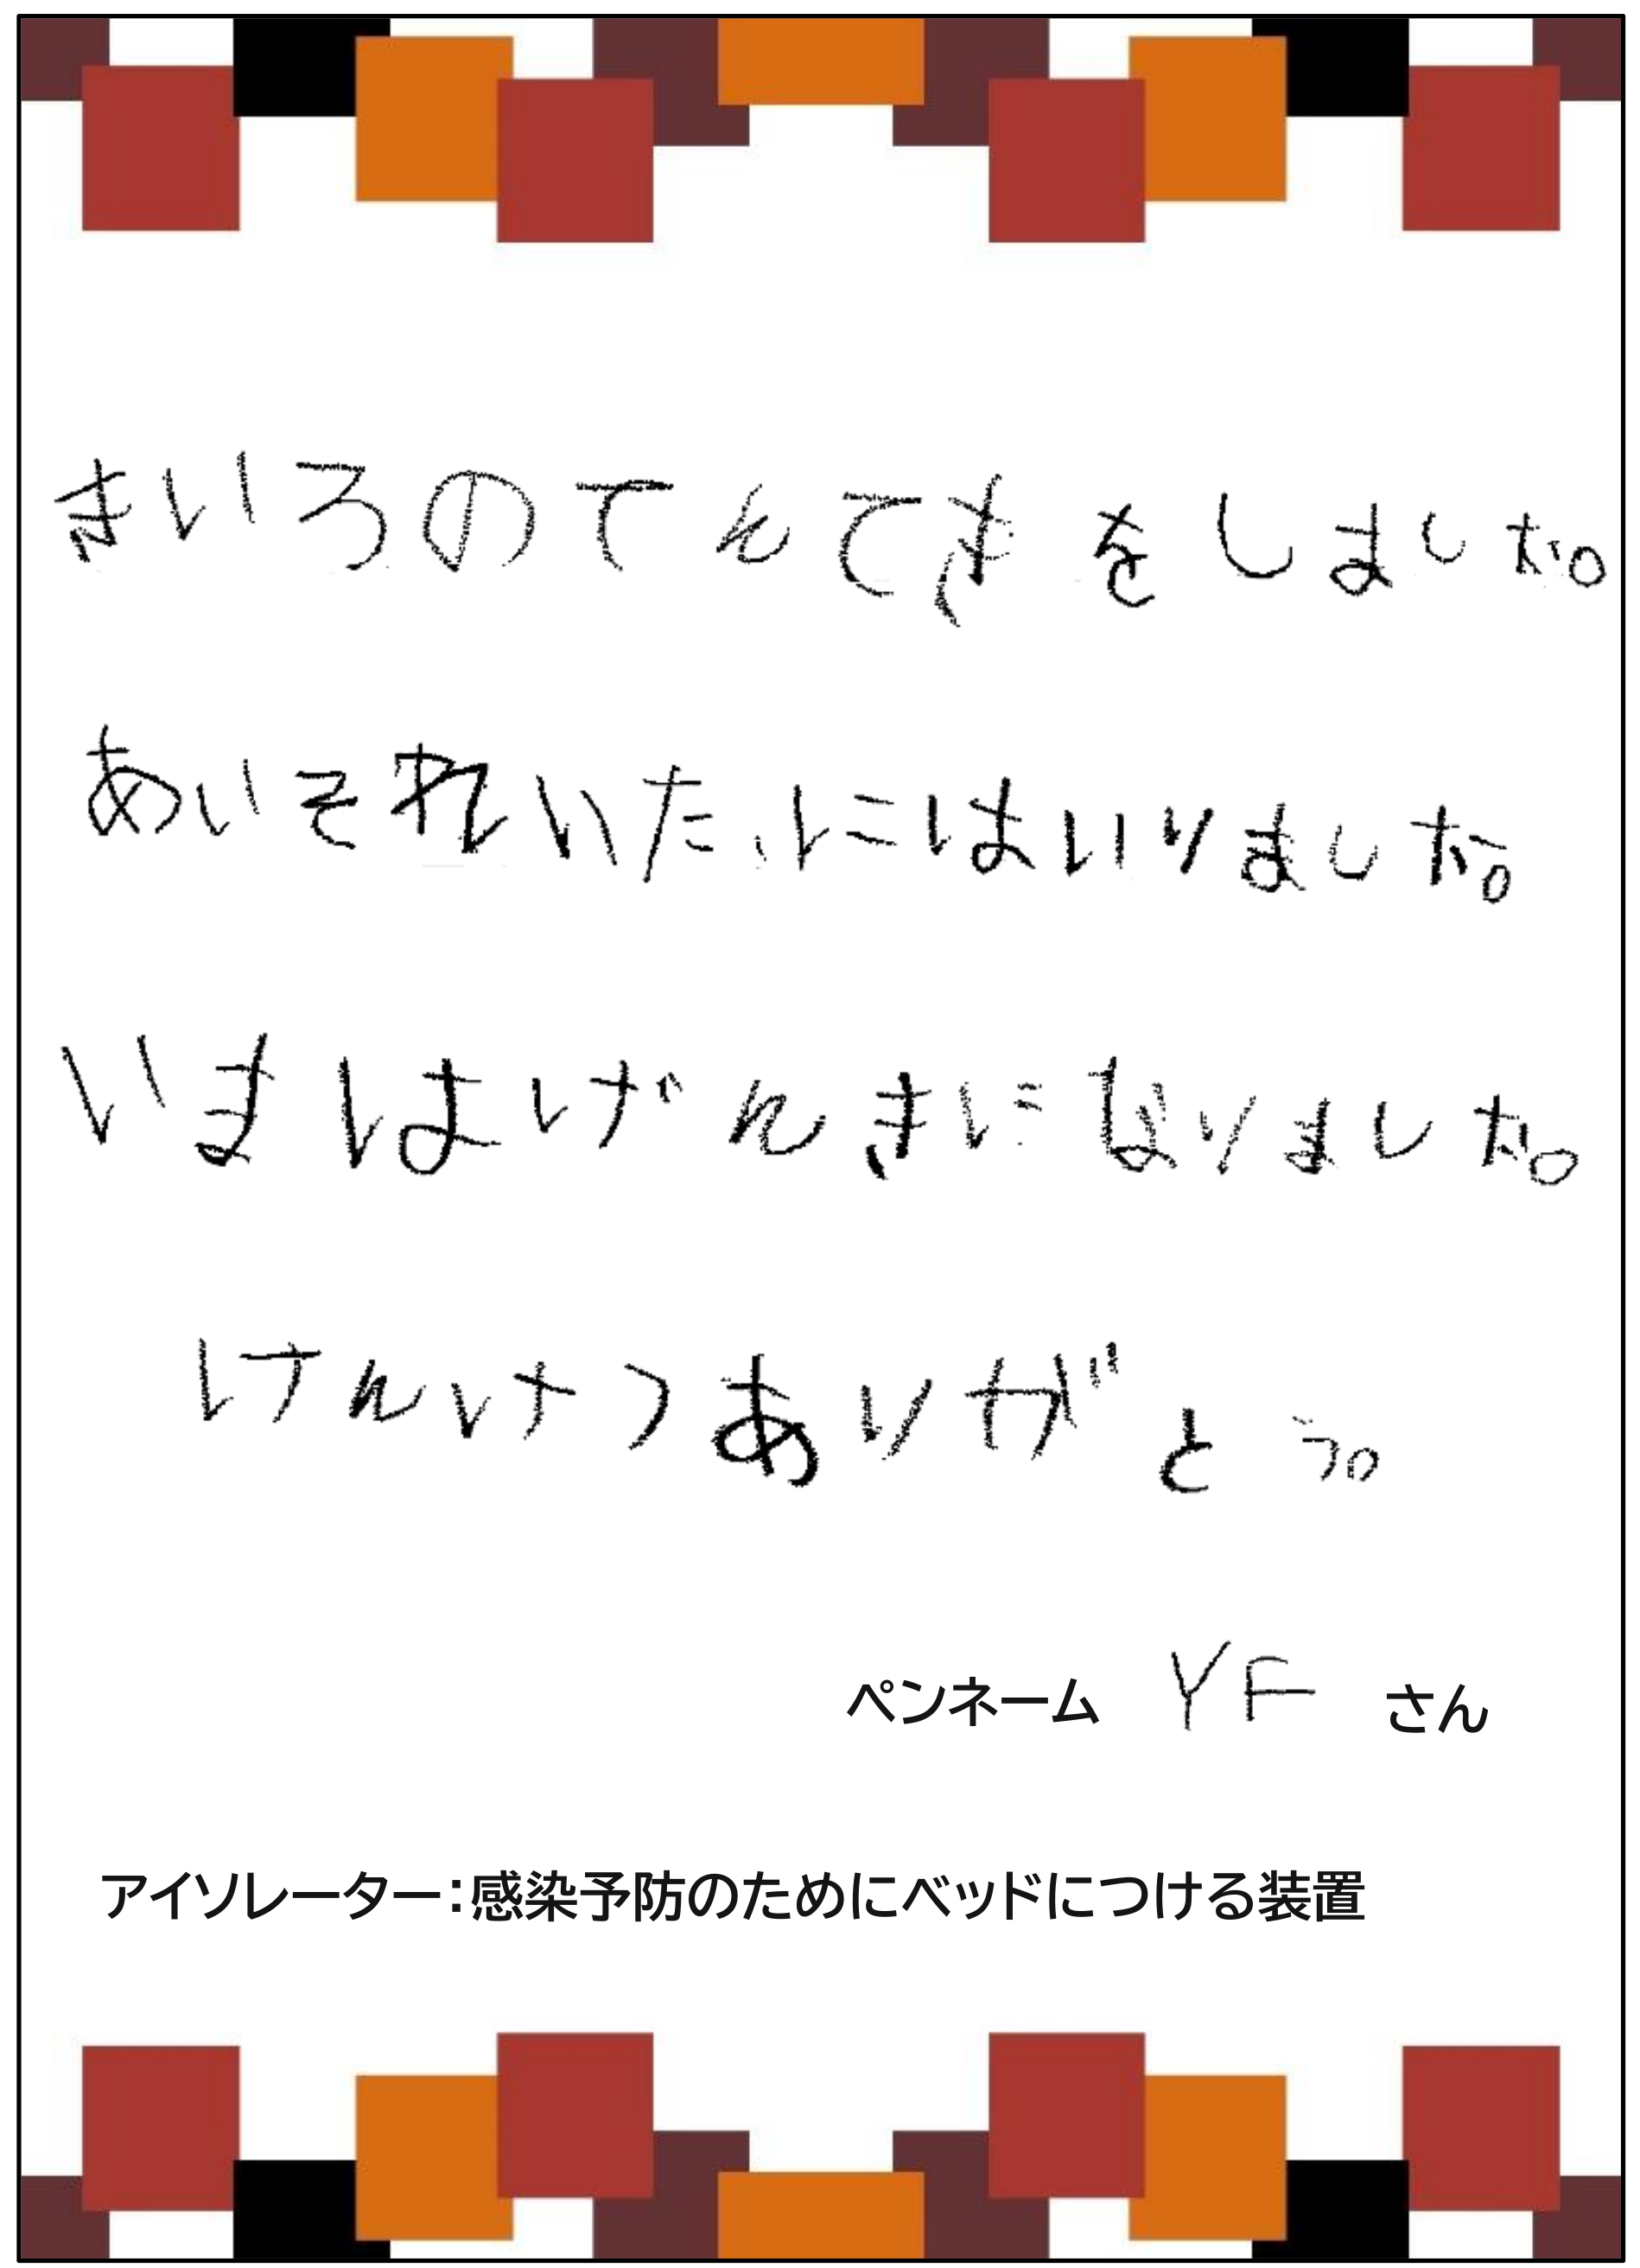 きいろのてんてきをしました。
あいそれいたにはいりました。
いまはげんきになりました。
けんけつありがとう。
ペンネーム YF さん
アイソレーター：感染予防のためにベッドにつける装置